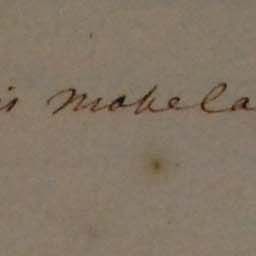 is mokela